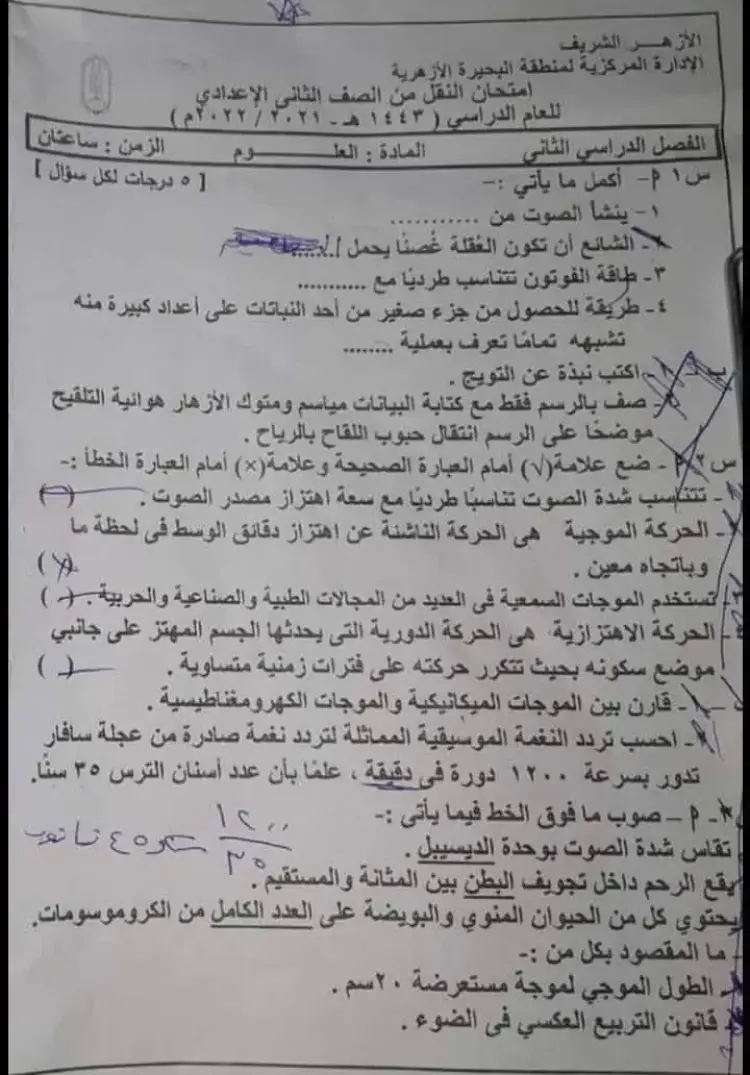 الأزهـــر الشريف
الإدارة المركزية لمنطقة البحيرة الأزهرية
امتحان النقل من الصف الثانى الإعدادي
للعام الدراسي ( ١٤٤٣ هـ - ٢٠٢١ / ٢٠٢٢م )
الفصل الدراسي الثاني المادة : العلـــــوم الزمن : ساعتان
س١ م- أكمل ما يأتي :- [ ٥ درجات لكل سؤال ]
١- ينشأ الصوت من ...........
٢- الشائع أن تكون العُقلة غُصنًا يحمل
٣- طاقة الفوتون تتناسب طرديًا مع ...........
٤- طريقة للحصول من جزء صغير من أحد النباتات على أعداد كبيرة منه
تشبهه تمامًا تعرف بعملية ........
ب- ١- اكتب نبذة عن التويج .
٢- صف بالرسم فقط مع كتابة البيانات مياسم ومتوك الأزهار هوائية التلقيح
موضحًا على الرسم انتقال حبوب اللقاح بالرياح .
س٢ م - ضع علامة(√) أمام العبارة الصحيحة وعلامة(×) أمام العبارة الخطأ :-
١- تتناسب شدة الصوت تناسبًا طرديًا مع سعة اهتزاز مصدر الصوت . ( )
٢- الحركة الموجية هى الحركة الناشئة عن اهتزاز دقائق الوسط فى لحظة ما
وباتجاه معين . ( )
٣- تستخدم الموجات السمعية فى العديد من المجالات الطبية والصناعية والحربية . ( )
٤- الحركة الاهتزازية هى الحركة الدورية التى يحدثها الجسم المهتز على جانبي
موضع سكونه بحيث تتكرر حركته على فترات زمنية متساوية . ( )
١- قارن بين الموجات الميكانيكية والموجات الكهرومغناطيسية .
٢- احسب تردد النغمة الموسيقية المماثلة لتردد نغمة صادرة من عجلة سافار
تدور بسرعة ١٢٠٠ دورة فى دقيقة ، علمًا بأن عدد أسنان الترس ٣٥ سنًا.
٣- م – صوب ما فوق الخط فيما يأتى :-
١٢٠٠
٣٥
تقاس شدة الصوت بوحدة الديسيبل .
يقع الرحم داخل تجويف البطن بين المثانة والمستقيم .
يحتوي كل من الحيوان المنوي والبويضة على العدد الكامل من الكروموسومات.
ما المقصود بكل من :-
الطول الموجي لموجة مستعرضة ٢٠سم .
قانون التربيع العكسي فى الضوء .